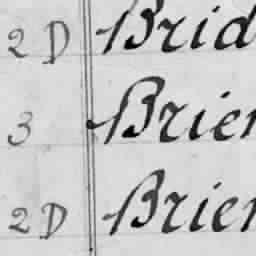 2 D Brid
3 Brier
2 D Brier